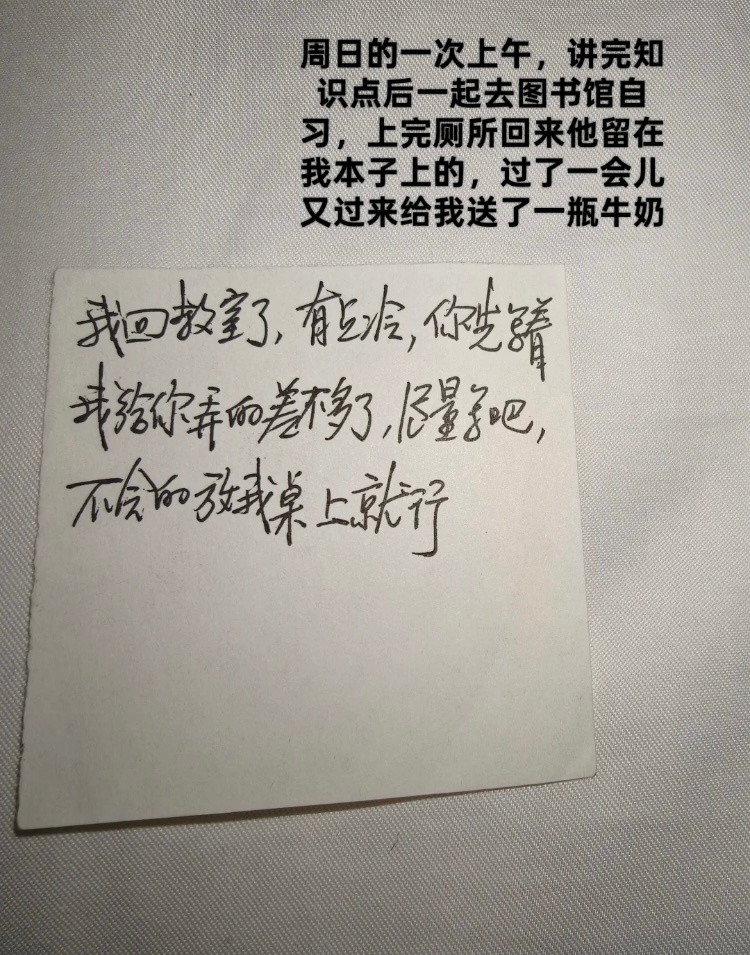 周日的一次上午，讲完知
识点后一起去图书馆自
习，上完厕所回来他留在
我本子上的，过了一会儿
又过来给我送了一瓶牛奶
我回教室了，有点冷，你先写着
我给你弄的差不多了，尽量写吧，
不会的放我桌上就行